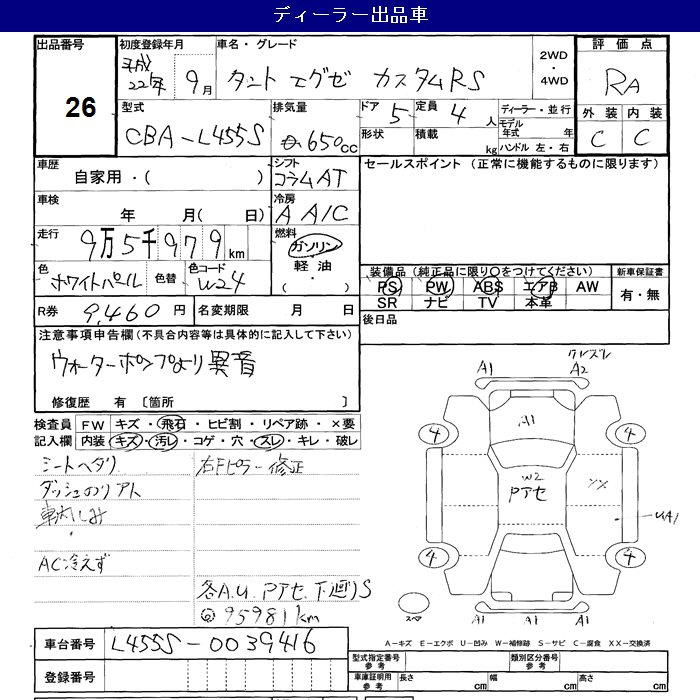 ディーラー出品車
出品番号 初度登録年月 車名・グレード 2WD・4WD 評価点
26 平成22年 9月 タント エグゼ カスタムRS RA
型式 排気量 ドア 5 定員 4人 ディーラー・並行 外装 内装
CBA-L455S 650cc 形状 積載 kg モデル年式 年 C C
ハンドル 左・右
車歴 シフト セールスポイント (正常に機能するものに限ります)
自家用・( ) コラムAT
車検 冷房
年 月( 日) A A/C
走行 燃料
9万5千979km ガソリン
軽油
・( )
色 色替 色コード 装備品 (純正品に限り〇をつけてください) 新車保証書
ホワイトパール W24 PS PW ABS エアB AW 有・無
SR ナビ TV 本革
R券 9,460円 名変期限 月 日 後日品
注意事項申告欄(不具合内容等は具体的に記入して下さい)
ウォーターポンプより異音
修復歴 有 〔箇所 〕
検査員 FW キズ・飛石・ヒビ割・リペア跡・×要
記入欄 内装 キズ・汚レ・コゲ・穴・スレ・キレ・破レ
シートヘタリ 右Fピラー修正
ダッシュのリアト
車内しみ
AC冷えず
各A.U. Pアセ 下廻りS
◎95981km
A1 クレズレ
A2
A1
4 4
W2
Pアセ XX
UA1
4 4
スペア A1 A1 A1
A-キズ E-エクボ U-凹み W-補修跡 S-サビ C-腐食 XX-交換済
車台番号 L455S-0039416
登録番号
型式指定番号 参考 類別区分番号 参考
車庫証明用 参考 長さ cm 幅 cm 高さ cm